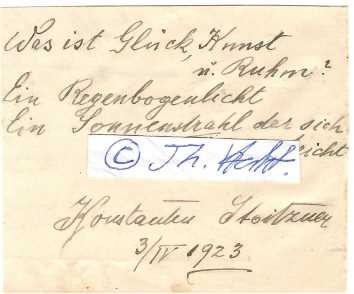 Was ist Glück, Kunst
u. Ruhm?
Ein Regenbogenlicht
Ein Sonnenstrahl der sich
© Th.
icht
Konstantin Stoitzner
3/IV 1923